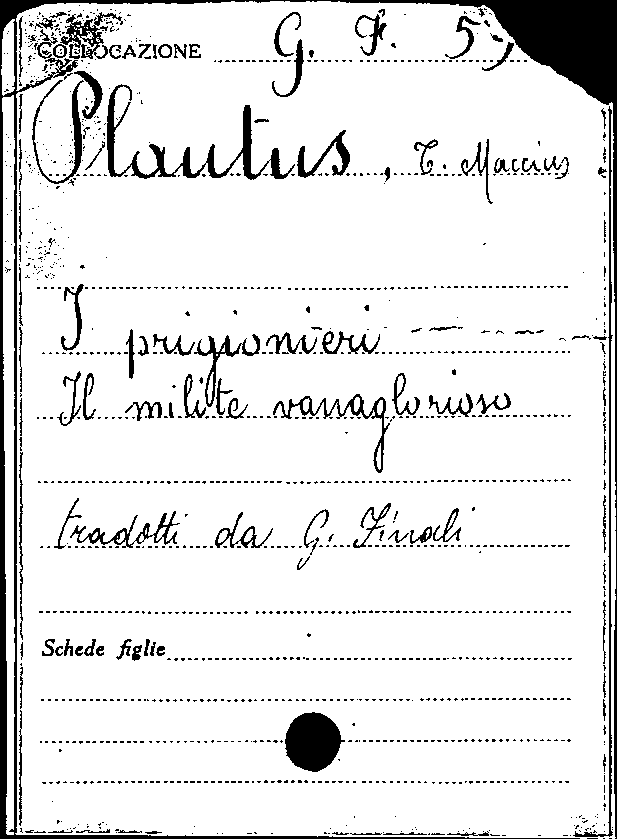 COLLOCAZIONE G. F. 5
Plautus, T. Maccius
I prigionieri
Il milite vanaglorioso
tradotti da G. Finali
Schede figlie